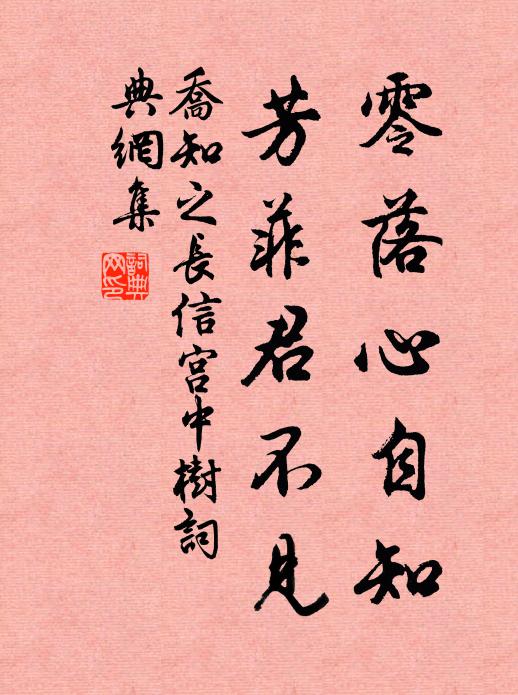 零落心自知
芳菲君不見
喬知之長信宮中樹詞
典網集
詞典
网印